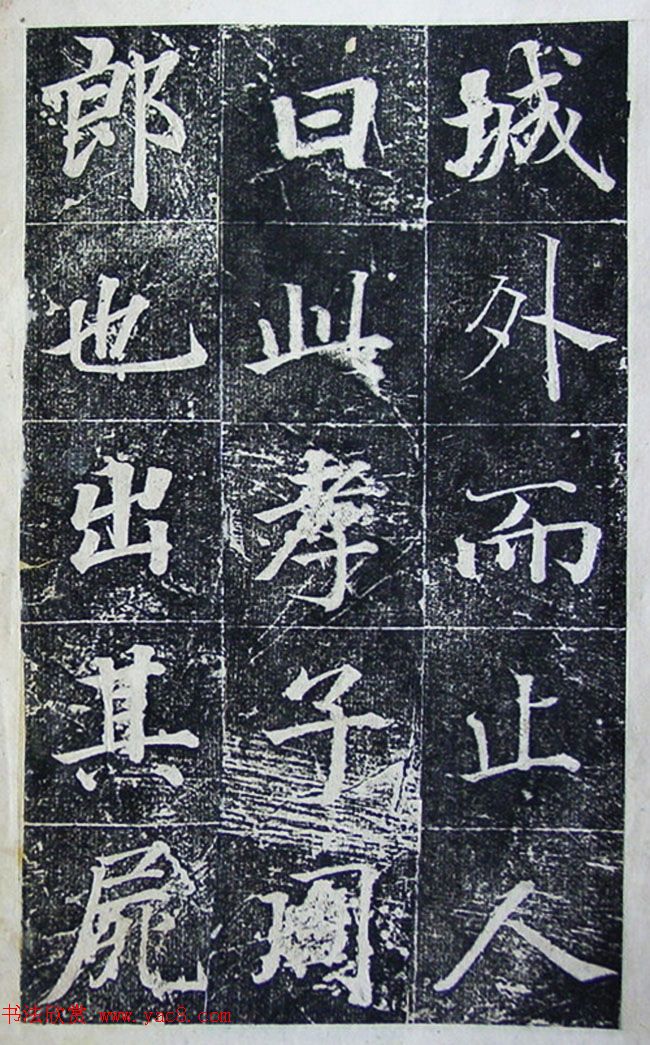 城外而止人
曰此孝子周
郎也出其屍
书法欣赏 www.yac8.com